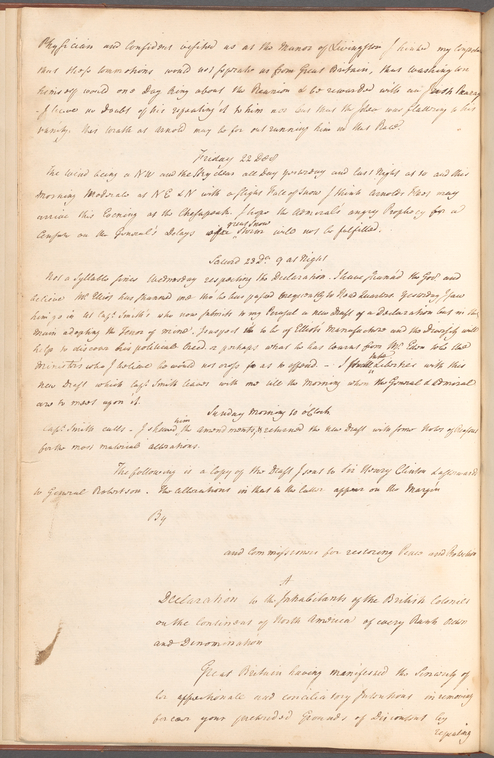 Physician and Confident visited us at the Manor of Livingston I hinted my
that those Commotions would not separate us from Great Britain, that Washington
himself would one Day bring about the Reunion & be rewarded with an Irish Peerage
I have no Doubt of his repeating it to him nor but that the Idea was flattering to his
Vanity. His wrath at Arnold may be for out running him in that Race.
Friday 22 Decr
The Wind being a NW and the Sky clear all day Yesterday and last Night as to and this
Morning Moderate at NE & N with a slight Fall of Snow I think Arnolds Fleet may
arrive this Evening at the Chesapeak. I hope the Admiral's angry Prophecy for a
Censure on the General's Delays after great Snow will not be fulfilled.
Saturd 23 Dr 9 at Night
Not a Syllable since Wednesday respecting the Declaration. I have the Govr and
believe Mr Elliot has me tho' he has passed to Head Quarters Yesterday I saw
him go in to Capt Smith's who now submits to my Perusal a new Draft of a Declaration but in the
Main adopting the Tenor of mine. I suspect this to be of Elliots Manufacture and the Diversity will
help to discover his political Creed or perhaps what he has learnt from Mr Eden who the
Ministers who I believe he would not cross so as to offend. I shall take Liberties with this
new Draft which Capt Smith leaves with me till the Morning when the General & Admiral
are to meet upon it.
Sunday Morning 10 oClock
Capt Smith calls. I shewed him the amendments, & returned the new Draft with some Notes of Reasons
for the most material alterations.
The following is a Copy of the Draft I sent to Sir Henry Clinton & afterwards
to General Robertson. The alterations in that to the latter appear on the Margin
By
and Commissioners for restoring Peace and Protection
A
Declaration to the Inhabitants of the British Colonies
on the Continent of North America of every Rank Order
and Denomination
Great Britain having manifested the Sincerity of
her affectionate and conciliatory Intentions in removing
for ever your pretended Grounds of Discontent by
repealing